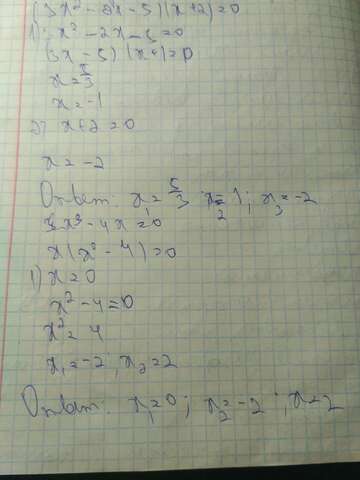 (3x² - 2x - 5)(x+2)=0
1) x² - 2x - 5=0
(3x - 5)(x+1)=0
x=5/3
x=-1
2) x+2=0
x=-2
Ответ: x₁=5/3 x₂=1; x₃=-2
x³-4x=0
x(x²-4)=0
1) x=0
x²-4=0
x²=4
x₁=-2; x₂=2
Ответ: x₁=0; x₂=-2; x=2